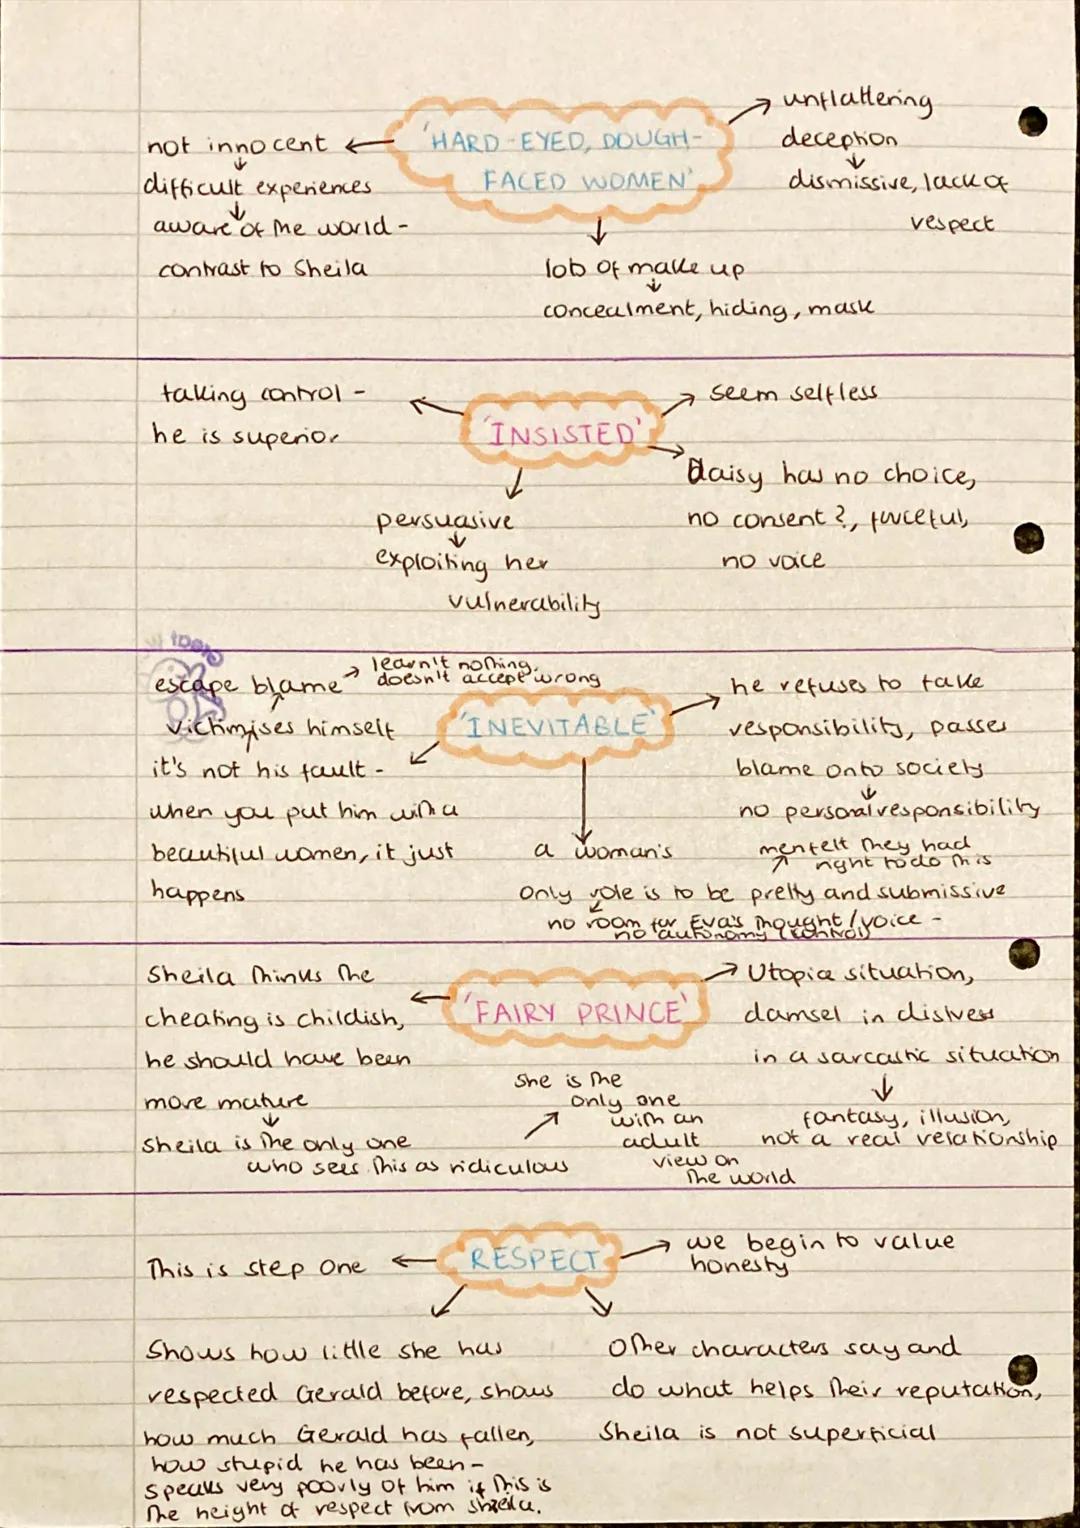 'HARD-EYED, DOUGH-
FACED WOMEN'
not innocent
difficult experiences
aware of the world -
contrast to Sheila
unflattering
deception
dismissive, lack of
respect
lots of make up
concealment, hiding, mask
'INSISTED'
taking control -
he is superior
seem selfless
Daisy has no choice,
no consent?, forceful,
no voice
persuasive
exploiting her
vulnerability
'INEVITABLE'
escape blame
learn't nothing,
doesn't accept wrong
victimises himself
it's not his fault -
when you put him with a
beautiful women, it just
happens
he refuses to take
responsibility, passes
blame onto society
no personal responsibility
a woman's
men felt they had
right to do this
only role is to be pretty and submissive
no room for Eva's thought/voice -
no autonomy (control)
'FAIRY PRINCE'
Sheila thinks the
cheating is childish,
he should have been
more mature
Sheila is the only one
who sees this as ridiculous
she is the
only one
with an
adult
view on
the world
Utopia situation,
damsel in distress
in a sarcastic situation
fantasy, illusion,
not a real relationship
RESPECT
This is step one
we begin to value
honesty
Shows how little she has
respected Gerald before, shows
how much Gerald has fallen,
how stupid he has been -
speaks very poorly of him if this is
the height of respect from sheila.
Other characters say and
do what helps their reputation,
Sheila is not superficial